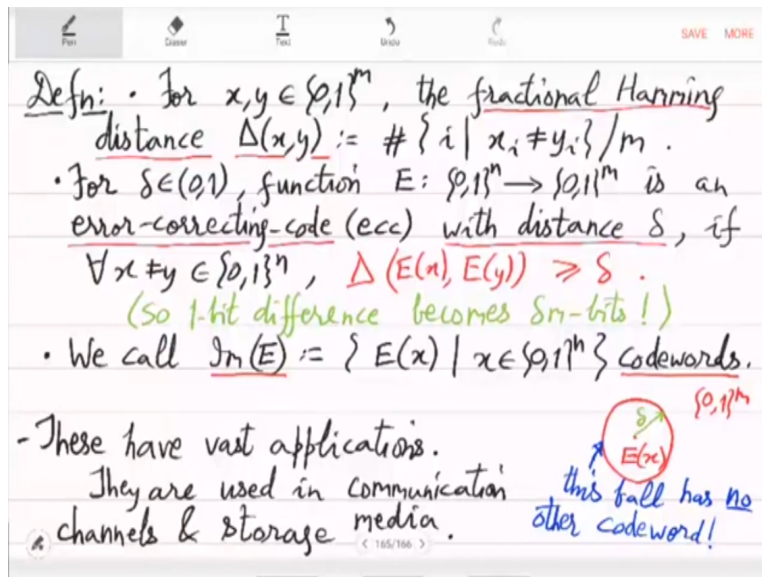 Pen Eraser Text Undo Redo SAVE MORE
Defn: · For x,y ∈ {0,1}^m, the fractional Hamming
distance Δ(x,y) := # { i | x_i ≠ y_i } / m .
· For δ∈(0,1), function E: {0,1}^n → {0,1}^m is an
error-correcting-code (ecc) with distance δ, if
∀x ≠ y ∈ {0,1}^n, Δ (E(x), E(y)) ≥ δ .
(So 1-bit difference becomes δm-bits!)
· We call Im(E) := { E(x) | x∈{0,1}^n } codewords.
{0,1}^m
δ
E(x)
- These have vast applications.
They are used in communication
channels & storage media.
this ball has no
other codeword!
< 165/166 >